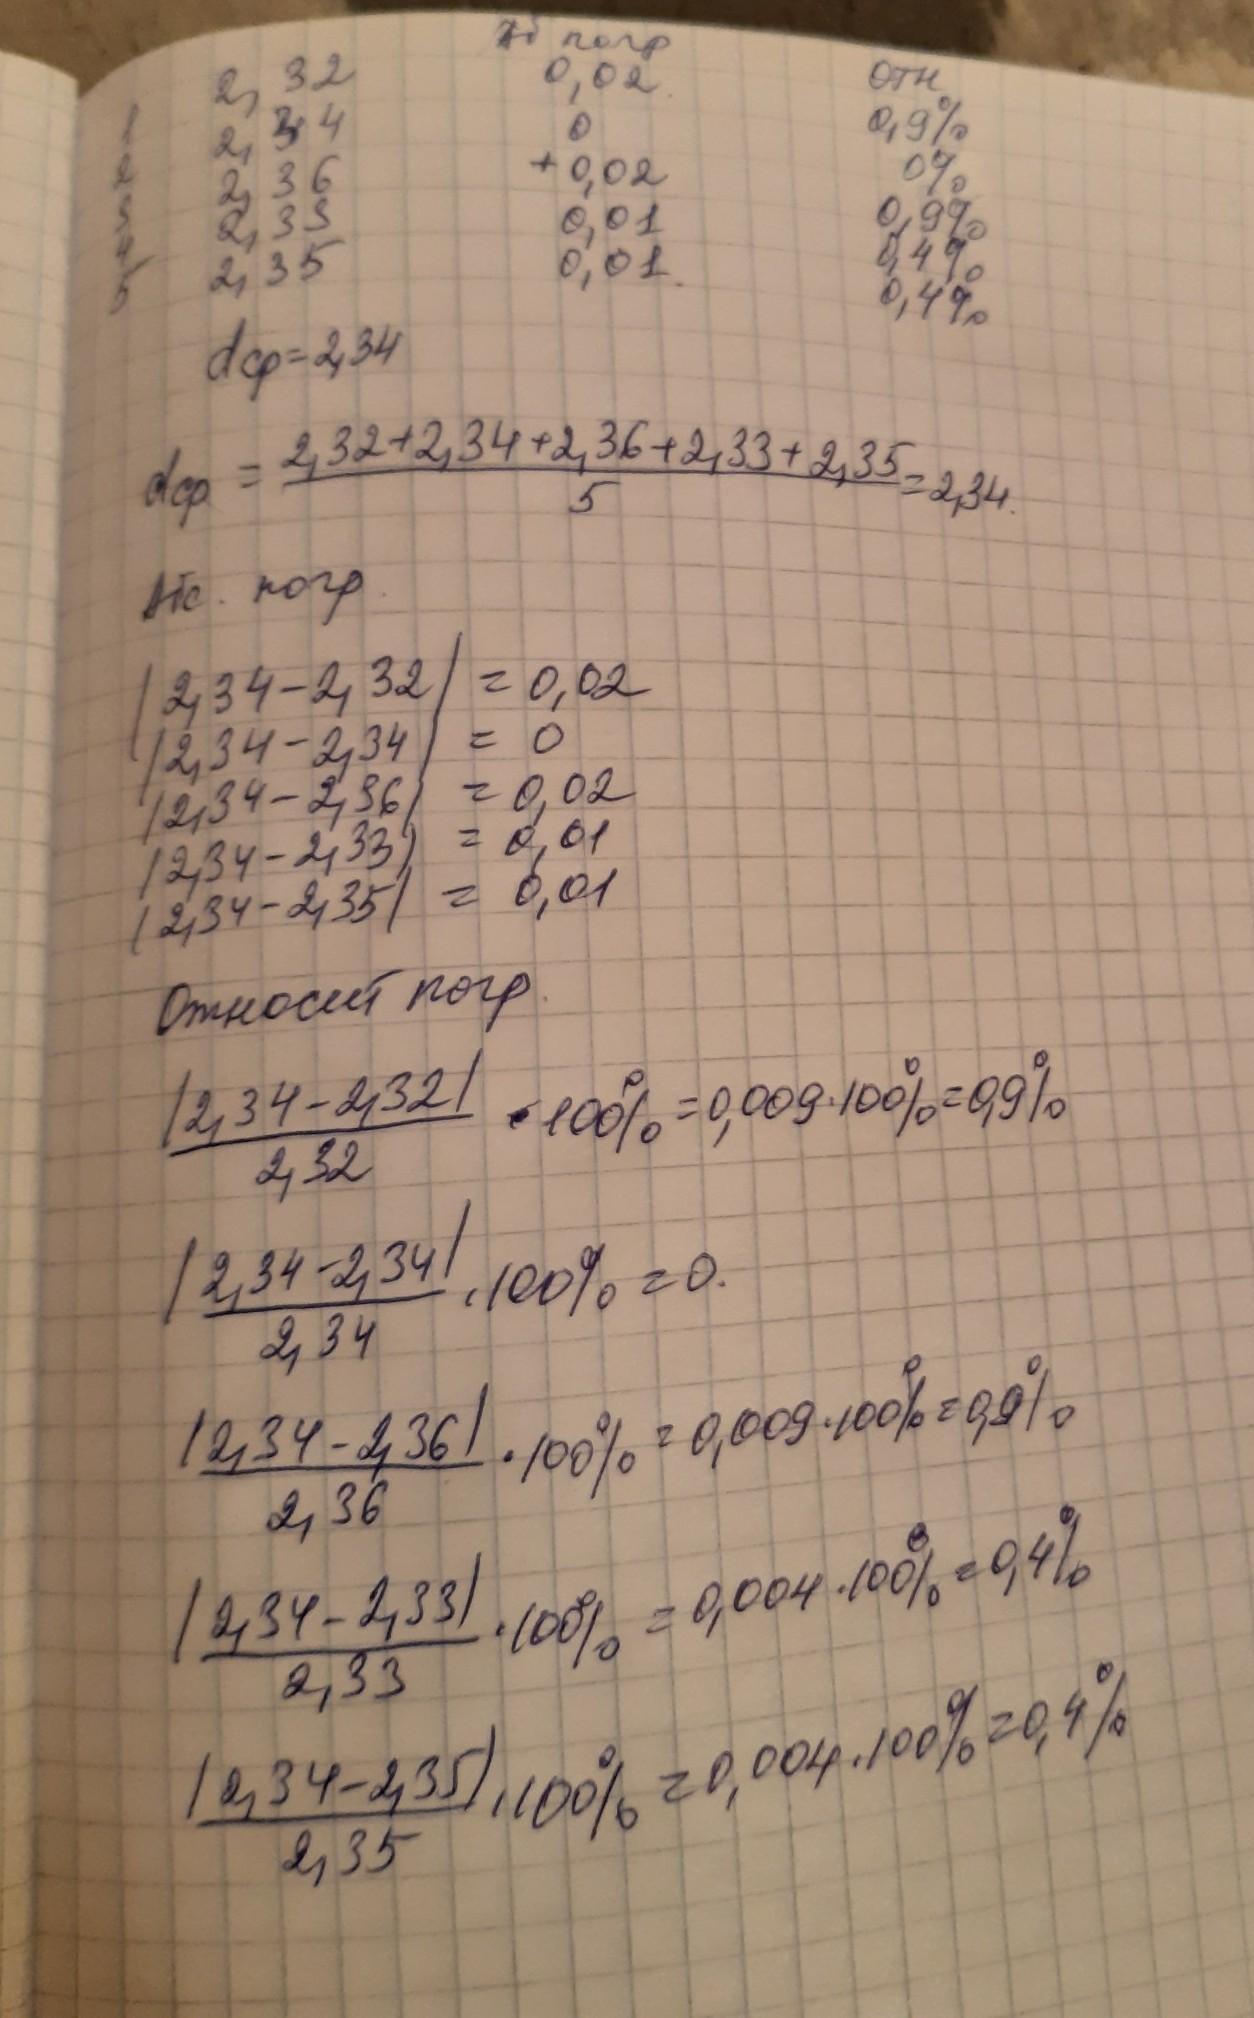 Аб погр отн
1 2,32 0,02 0,9%
2 2,34 0 0%
3 2,36 +0,02 0,9%
4 2,33 0,01 0,4%
5 2,35 0,01. 0,4%
dср=2,34
dср = (2,32+2,34+2,36+2,33+2,35)/5 = 2,34.
Абс. погр.
|2,34-2,32| = 0,02
|2,34-2,34| = 0
|2,34-2,36| = 0,02
|2,34-2,33| = 0,01
|2,34-2,35| = 0,01
Относит погр.
|2,34-2,32|/2,32 · 100% = 0,009·100% = 0,9%
|2,34-2,34|/2,34 · 100% = 0.
|2,34-2,36|/2,36 · 100% = 0,009·100% = 0,9%
|2,34-2,33|/2,33 · 100% = 0,004·100% = 0,4%
|2,34-2,35|/2,35 · 100% = 0,004·100% = 0,4%